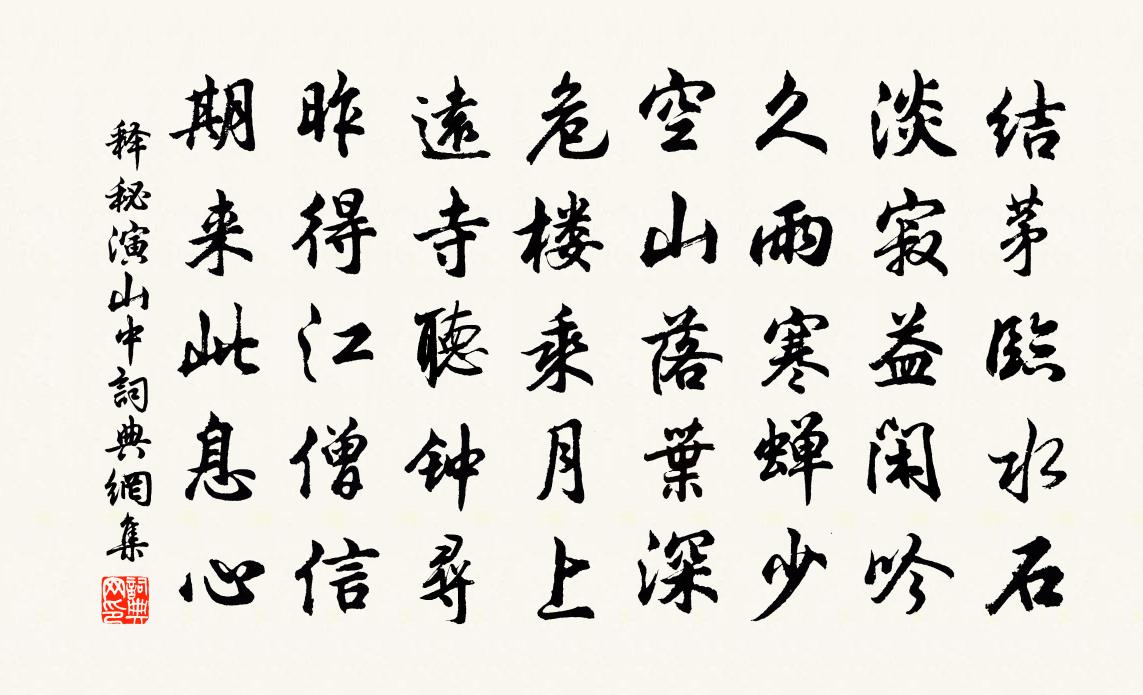 结茅臨水石
淡寂益闲吟
久雨寒蝉少
空山落葉深
危楼乘月上
遠寺聽钟尋
昨得江僧信
期来此息心
释秘演山中詞典網集
詞典网印